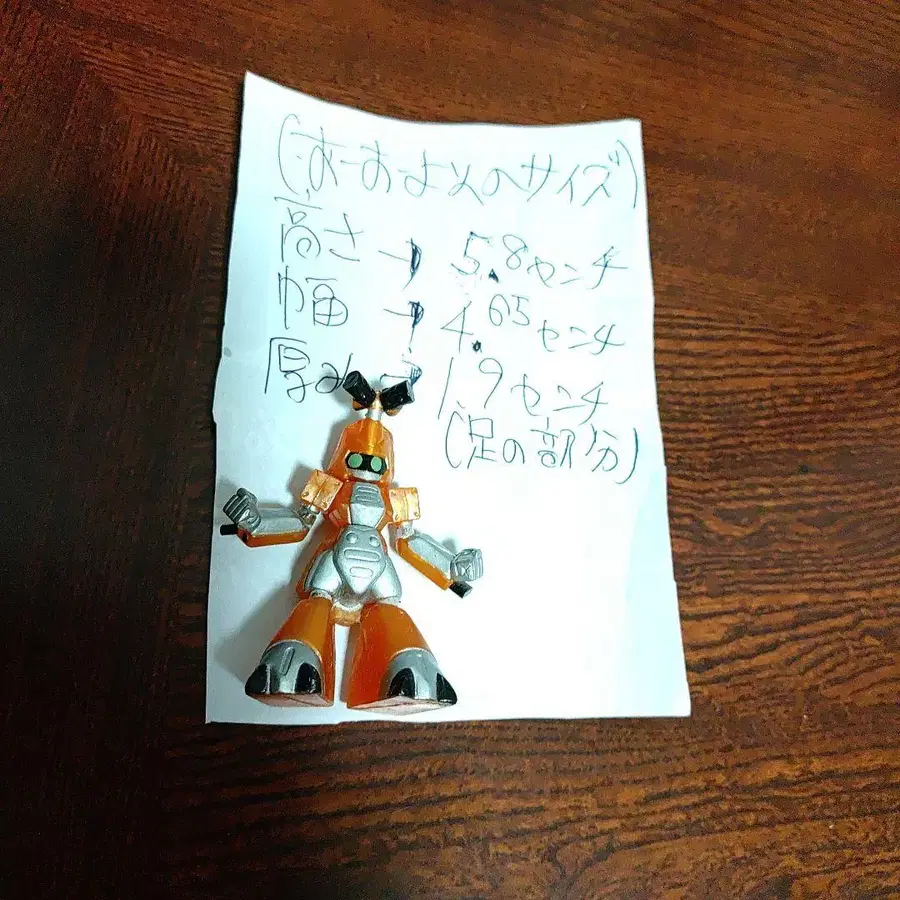 (おーおよそのサイズ)
高さ → 5.8センチ
幅 → 4.65センチ
厚み → 1.9センチ
(足の部分)